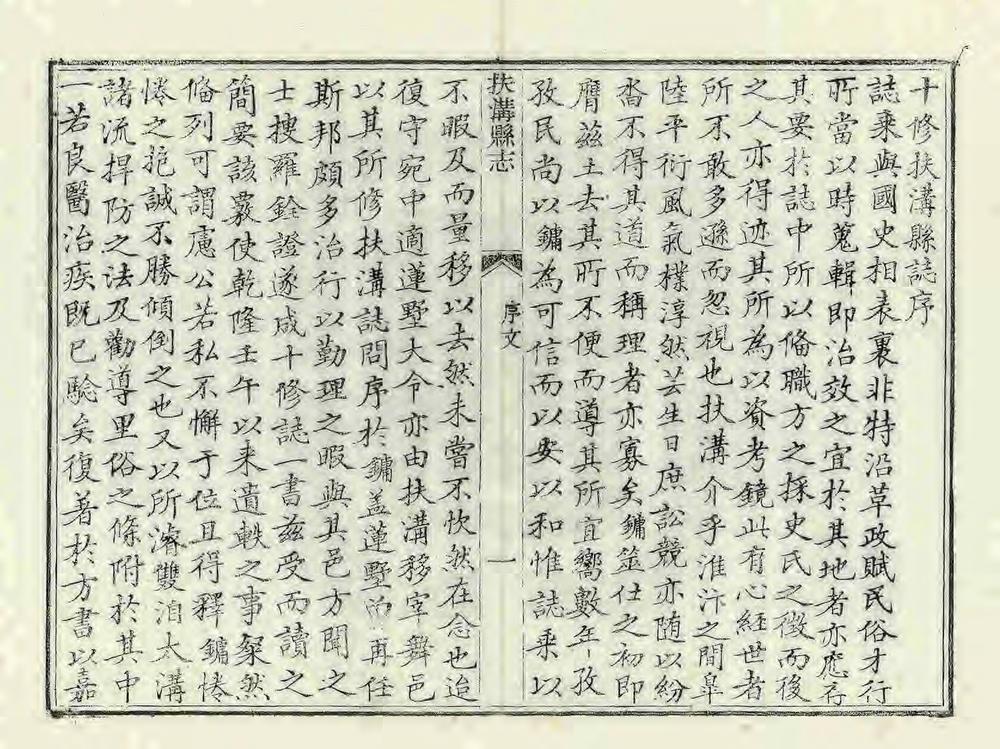 十修扶溝縣誌序
誌乘與國史相表裏非特沿革政賦民俗才行
所當以時蒐輯即治效之宜於其地者亦應存
其要於誌中所以俻職方之採史氏之徵而後
之人亦得迹其所為以資考鏡此有心經世者
所不敢多遜而忽視也扶溝介乎淮汴之間臯
陸平衍風氣樸淳然芸生日庶訟競亦随以紛
沓不得其道而稱理者亦寡矣鏞筮仕之初即
膺兹土去其所不便而導其所宜嚮數年孜
孜民尚以鏞為可信而以安以和惟誌乘以
扶溝縣志
序文
一
不暇及而量移以去然未嘗不忺然在念也迨
復守宛中適蓮墅大令亦由扶溝移宰舞邑
以其所修扶溝誌問序於鏞盖蓮墅兩再任
斯邦頗多治行以勤理之暇與其邑方聞之
士搜羅銓證遂成十修誌一書兹受而讀之
簡要該覈使乾隆壬午以来遺軼之事粲然
俻列可謂慮公若私不懈于位且得釋鏞惓
惓之抱誠不勝傾倒之也又以所濬雙洎太溝
諸流捍防之法及勸導里俗之條附於其中
一若良醫治疾既已驗矣復著於方書以嘉